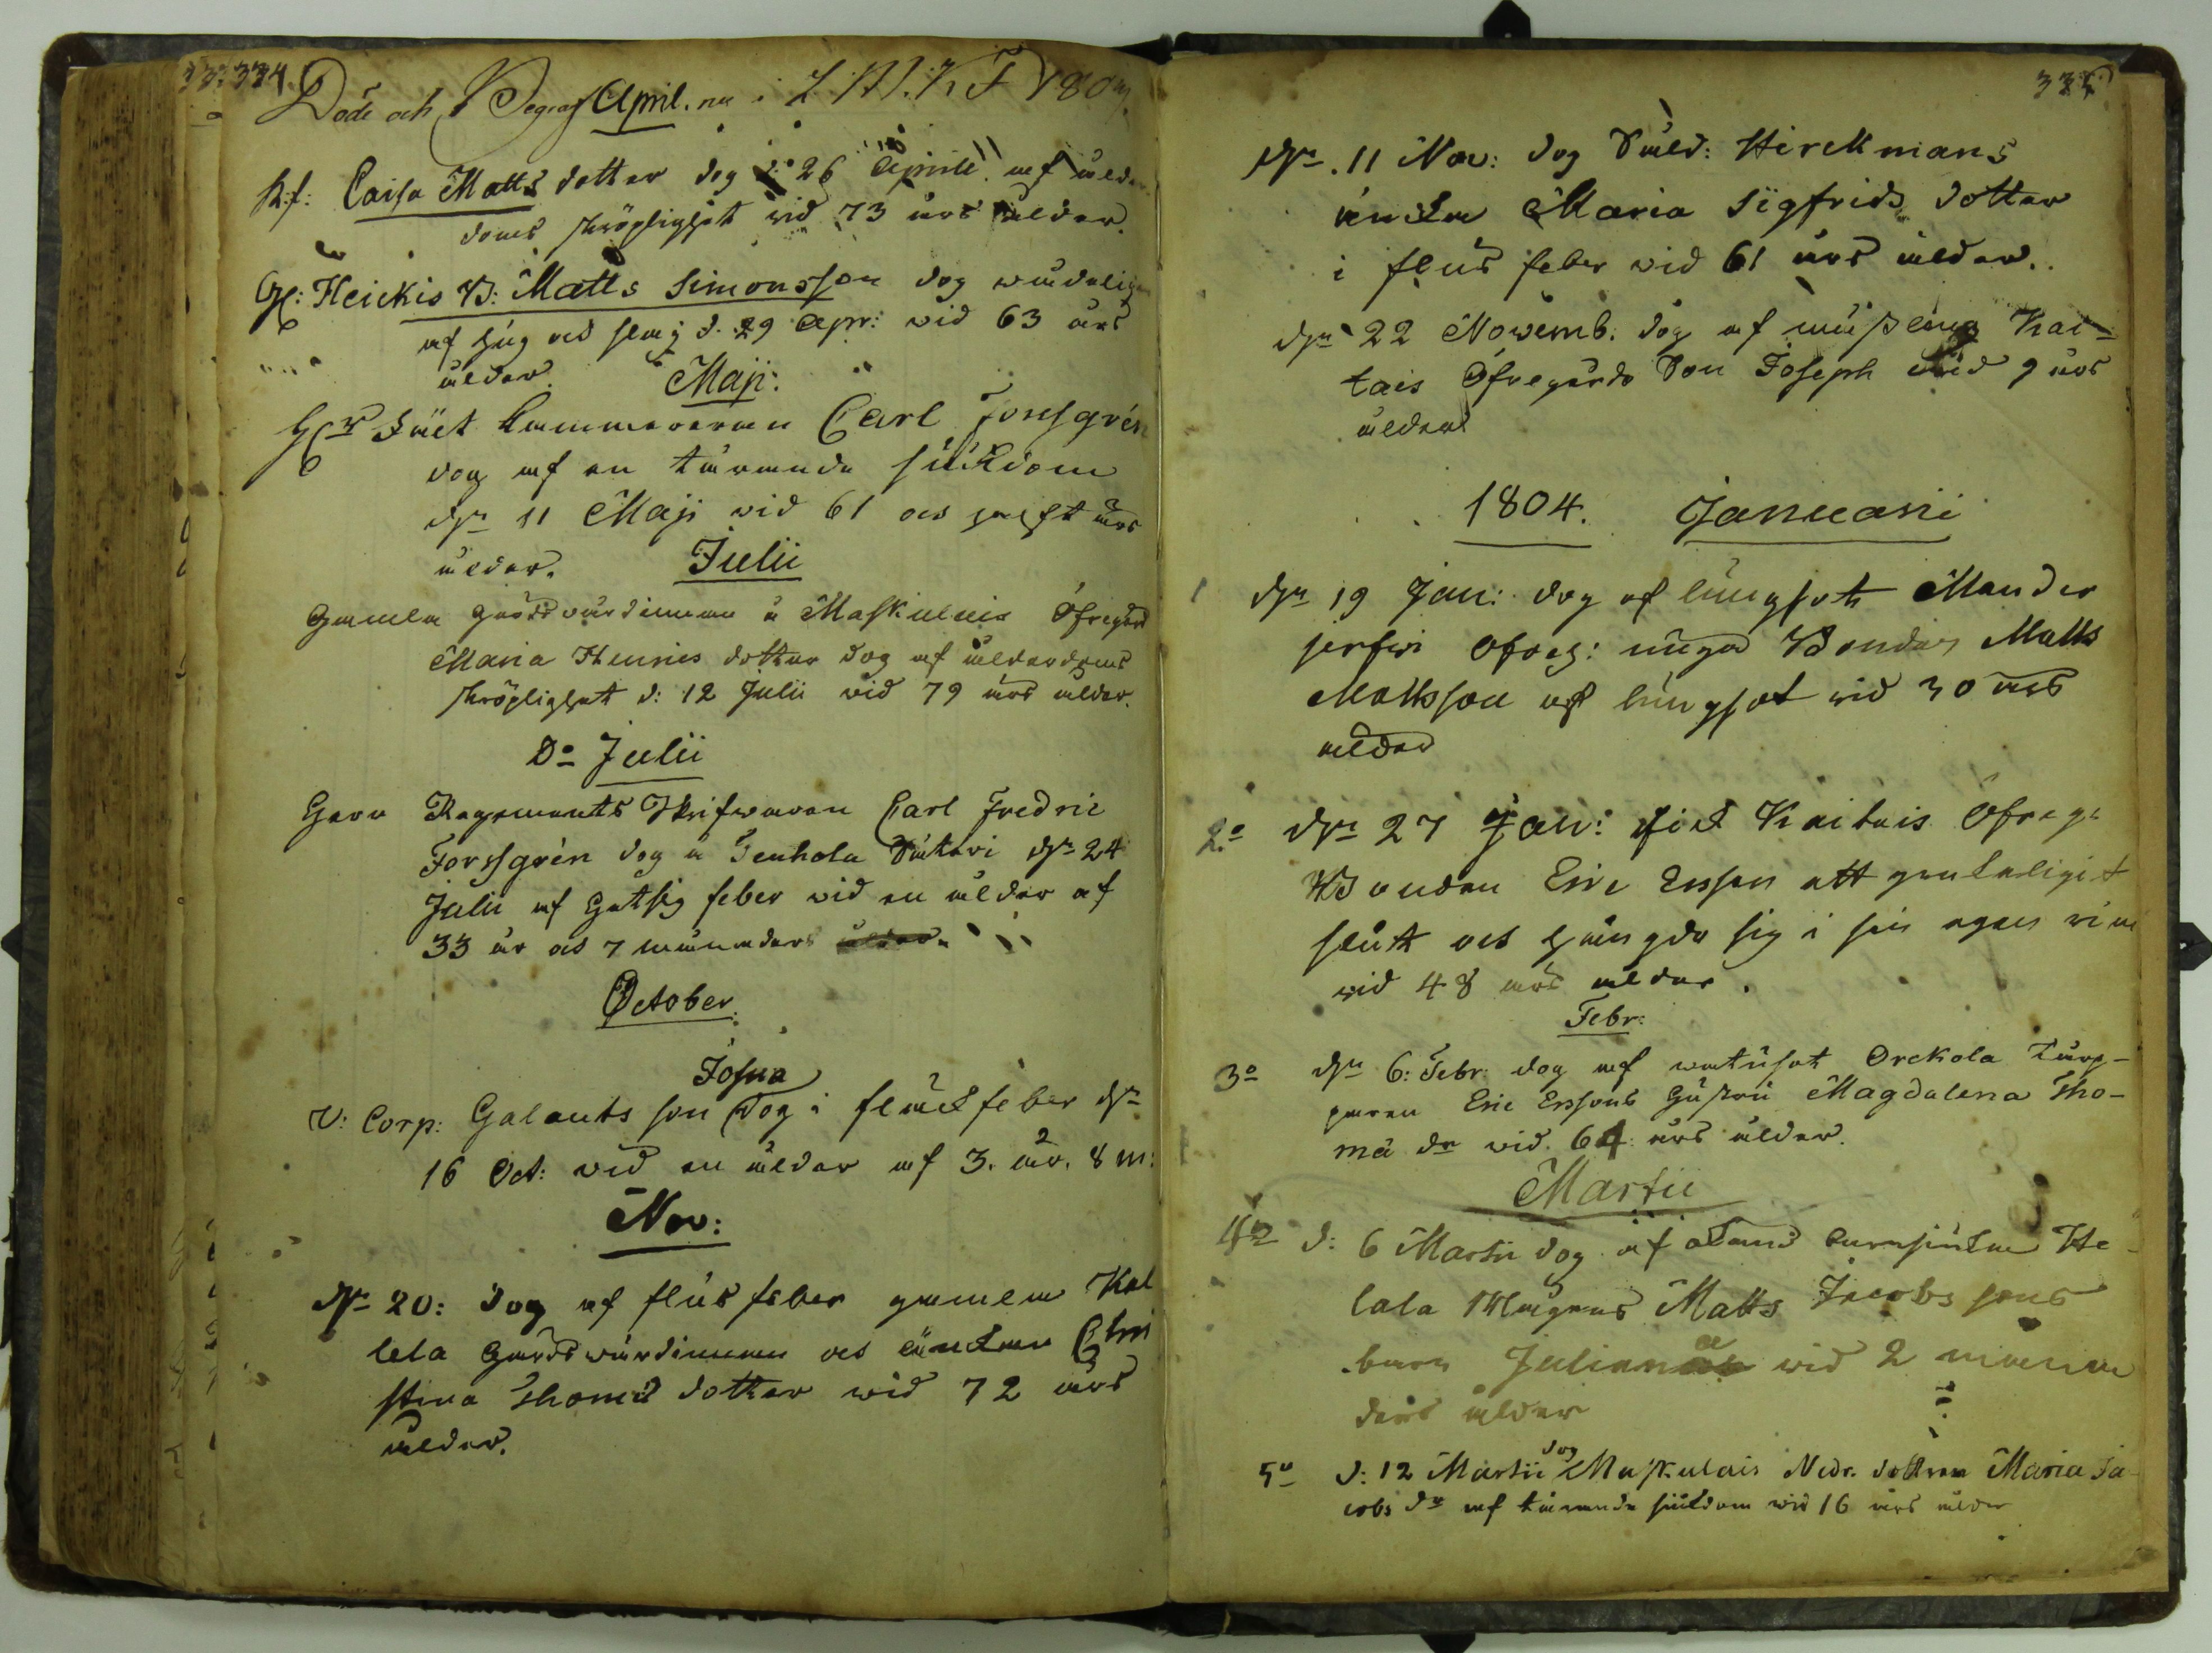 334.
Döde och Begraf April. ne i L.M.K.F 1803
K:f: Caisa Matts dotter dog d: 26 Aprill. af ålder
doms skröplighet wid 73 års ålder.
Gl: Heickis B: Matts Simonsson dog
af håg och slag d. 29 Apr: wid 63 års
ålder. Maji:
Carl Forssgrén
dog af en tärande siukdom
dn 11 Maji wid 61 och halft års
ålder. Julii
Gamla gårdswärdinnan å Maskulais Öfregård
Maria Henrics dotter dog af ålderdoms
skröplighet d: 12 Julii wid 79 års ålder.
Do Julii
Herr Regements Skrifwaren Carl Fredric
Forssgrén dog å Tenhola dn 24
Julii af hetsig feber wid en ålder af
33 år och 7 månaders ålder.
October.
Josua
V: Corp: Galants son dog i fläckfeber dn
16 Oct: wid en ålder af 3. år. 8 m:
Nov:
dn 20: dog af flussfeber gamla Kal
lela Gårdswärdinnan och änckan Chri
stina Thomæ dotter wid 72 års
ålder.
335
dn. 11 Nov: dog Suld: Hirckmans
änckia Maria Sigfrids dotter
i fluss feber wid 61 års ålder.
dn 22 Novemb. dog af mässling Kai-
tais Öfregårds Son Joseph wid 9 års
ålder
1804. Januarii
1 dn 19 Jan: dog af lungsot Mander
jerfwi Öfreg: unga Bonden Matts
Mattsson af lungsot wid 30 års
ålder
2o dn 27 Jan: fick Kaitais Öfreg:
Bonden Eric Ersson ett
slut och hängde sig i sin egen
wid 48 års ålder.
Febr:
3o dn 6: Febr: dog af watusot Orckola Torp-
paren Eric Erssons hustru Magdalena Tho-
mæ dr wid 64 års ålder.
Martii
4o d: 6 Martii dog af okänd barnsiukdom He
lala Mågens Matts Jacobs sons
barn Juliana wid 2 måna
ders ålder
5o d: 12 Martii dog Maskulais Nedr. dottren Maria Ja
cobs dr af tärande siukdom wid 16 års ålder